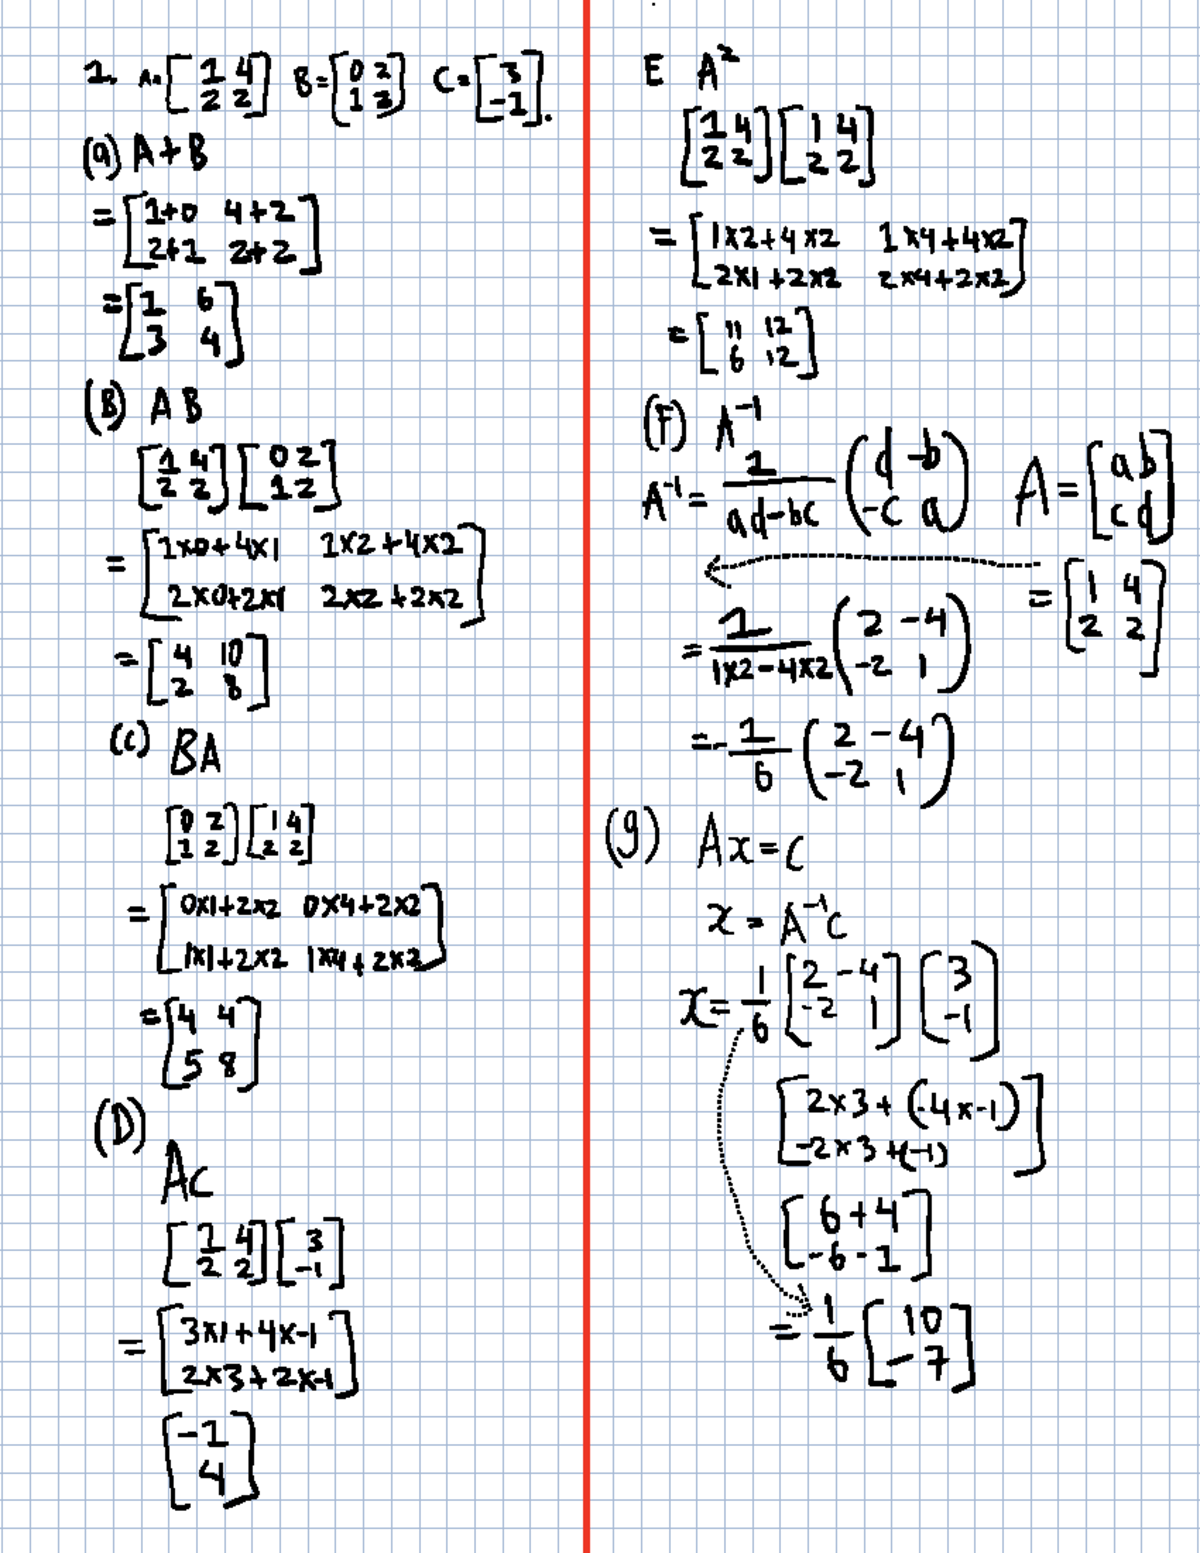 1. A= [1 4 2 2] B= [0 2 1 2] C= [3 -1].
(a) A+B
= [1+0 4+2
2+1 2+2]
= [1 6
3 4]
(B) AB
[1 4 2 2] [0 2 1 2]
= [1x0+4x1 1x2+4x2
2x0+2x1 2x2+2x2]
= [4 10
2 8]
(c) BA
[0 2 1 2] [1 4 2 2]
= [0x1+2x2 0x4+2x2
1x1+2x2 1x4+2x2]
= [4 4
5 8]
(D)
AC
[1 4 2 2] [3 -1]
= [3x1+4x-1
2x3+2x-1]
[-1
4]
E A²
[1 4 2 2] [1 4 2 2]
= [1x2+4x2 1x4+4x2
2x1+2x2 2x4+2x2]
= [11 12
6 12]
(F) A⁻¹
A⁻¹ = 1/(ad-bc) (d -b -c a) A = [a b c d]
= [1 4 2 2]
= 1/(1x2-4x2) (2 -4 -2 1)
= -1/6 (2 -4 -2 1)
(g) Ax=C
x = A⁻¹C
x = 1/6 [2 -4 -2 1] [3 -1]
[2x3+(-4x-1)
-2x3+(-1)]
[6+4
-6-1]
= 1/6 [10
-7]